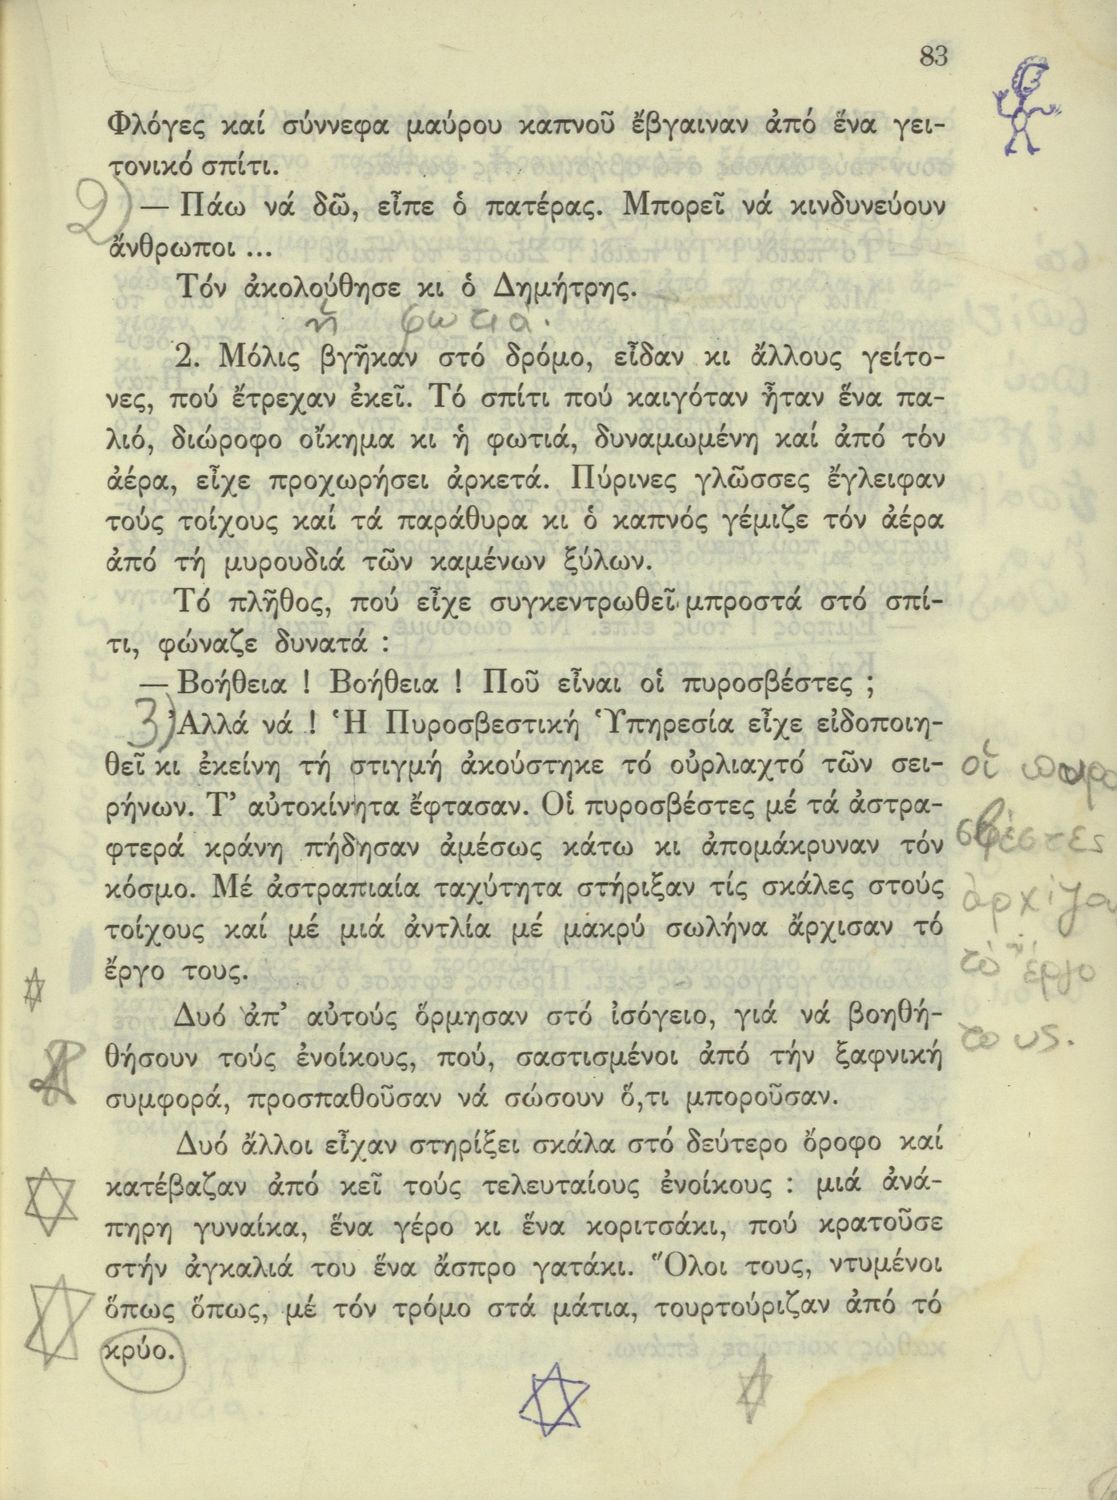 83
Φλόγες καί σύννεφα μαύρου καπνοῦ ἔβγαιναν ἀπό ἕνα γει-
τονικό σπίτι.
2) — Πάω νά δῶ, εἶπε ὁ πατέρας. Μπορεῖ νά κινδυνεύουν
ἄνθρωποι ...
Τόν ἀκολούθησε κι ὁ Δημήτρης.
ἡ φωτιά.
2. Μόλις βγῆκαν στό δρόμο, εἶδαν κι ἄλλους γείτο-
νες, πού ἔτρεχαν ἐκεῖ. Τό σπίτι πού καιγόταν ἦταν ἕνα πα-
λιό, διώροφο οἴκημα κι ἡ φωτιά, δυναμωμένη καί ἀπό τόν
ἀέρα, εἶχε προχωρήσει ἀρκετά. Πύρινες γλῶσσες ἔγλειφαν
τούς τοίχους καί τά παράθυρα κι ὁ καπνός γέμιζε τόν ἀέρα
ἀπό τή μυρουδιά τῶν καμένων ξύλων.
Τό πλῆθος, πού εἶχε συγκεντρωθεῖ μπροστά στό σπί-
τι, φώναζε δυνατά :
— Βοήθεια ! Βοήθεια ! Ποῦ εἶναι οἱ πυροσβέστες ;
3) Ἀλλά νά ! Ἡ Πυροσβεστική Ὑπηρεσία εἶχε εἰδοποιη-
θεῖ κι ἐκείνη τή στιγμή ἀκούστηκε τό οὐρλιαχτό τῶν σει-
ρήνων. Τ' αὐτοκίνητα ἔφτασαν. Οἱ πυροσβέστες μέ τά ἀστρα-
φτερά κράνη πήδησαν ἀμέσως κάτω κι ἀπομάκρυναν τόν
κόσμο. Μέ ἀστραπιαία ταχύτητα στήριξαν τίς σκάλες στούς
τοίχους καί μέ μιά ἀντλία μέ μακρύ σωλήνα ἄρχισαν τό
ἔργο τους.
Δυό ἀπ' αὐτούς ὅρμησαν στό ἰσόγειο, γιά νά βοηθή-
θήσουν τούς ἐνοίκους, πού, σαστισμένοι ἀπό τήν ξαφνική
συμφορά, προσπαθοῦσαν νά σώσουν ὅ,τι μποροῦσαν.
Δυό ἄλλοι εἶχαν στηρίξει σκάλα στό δεύτερο ὄροφο καί
κατέβαζαν ἀπό κεῖ τούς τελευταίους ἐνοίκους : μιά ἀνά-
πηρη γυναίκα, ἕνα γέρο κι ἕνα κοριτσάκι, πού κρατοῦσε
στήν ἀγκαλιά του ἕνα ἄσπρο γατάκι. Ὅλοι τους, ντυμένοι
ὅπως ὅπως, μέ τόν τρόμο στά μάτια, τουρτούριζαν ἀπό τό
κρύο.
οἱ πυρο
σβέστες
ἀρχίζα
τό ἔργο
τους.